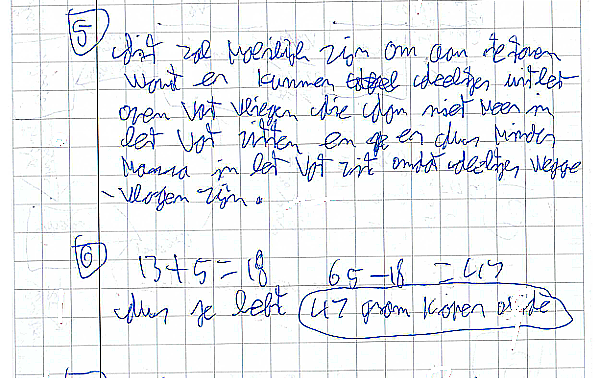 5
dit zal moeilijk zijn om aan te tonen
want er kunnen deeltjes uit het
open vat vliegen die dan niet meer in
het vat zitten en er dus minder
massa in het vat zit omdat deeltjes wegge
-vlogen zijn.
6
13+5=18 65-18 =47
dus je hebt 47 gram koper oxide